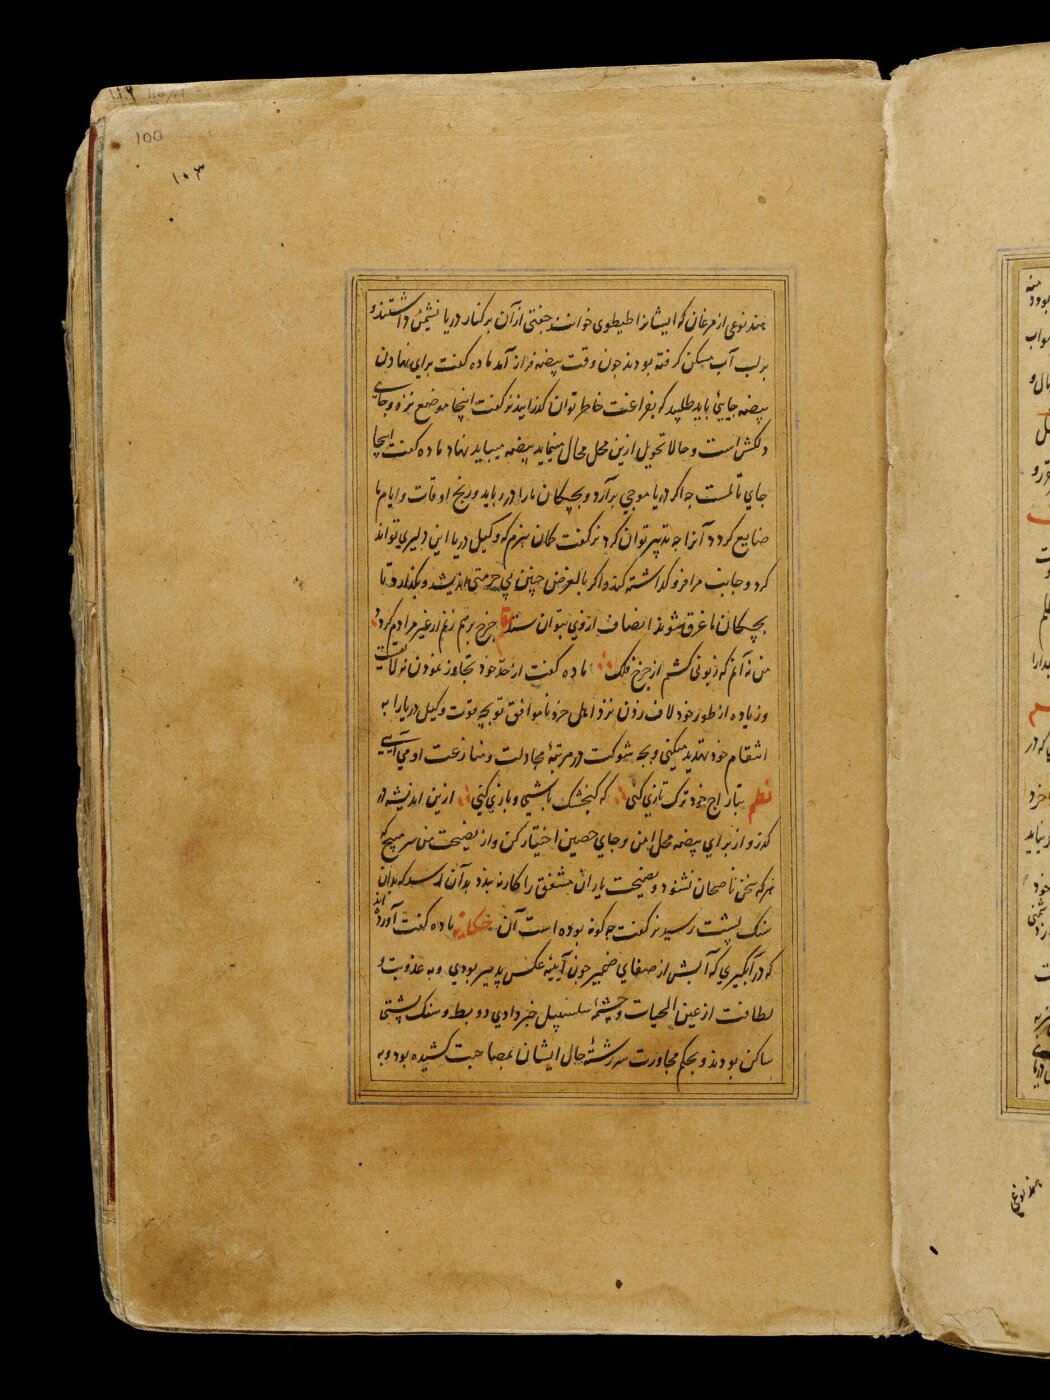 100
۱۰۳
هند نوعی از مرغان که ایشانرا طیطوی خوانند جفتی ازآن برکنار دریا نشیمن داشتند و
بر لب آب مسکن گرفته بودند جون وقت بیضه فراز آمد ماده کفت برای نهادن
بیضه جایی باید طلبید که بفراغت خاطر توان کذرانید نر کفت اینجا موضع نزه و جای
دلکش است و حالا تحویل ازین محل محال مینماید بیضه میباید نهاد ماده کفت اینجا
جای تاملست جه اکر دریا موجی برآرد و بچکان مارا در رباید و رنج اوقات و ایام ما
ضایع کردد آنرا جه تدبیر توان کرد نر کفت کمان نبرم که وکیل دریا این دلیری تواند
کرد و جانب مرا فرو کذاشته کند و اکر بالفرض چنین بی حرمتی اندیشد و بکذارد تا
بچکان ما غرق شوند انصاف از وی بتوان ستد جرخ برهم زنم ار غیر مرادم کردد
من نه آنم که زبونی کشم از جرخ فلک ماده کفت از حد خود تجاوز نمودن نه لایقست
و زیاده از طور خود لاف زدن نزد اهل خرد ناموافق تو بچه قوت وکیل دریارا به
انتقام خود تهدید میکنی و بجه شوکت در مرتبهٔ مجادلت و منازعت او می آیی
نظم بتاراج خود ترک تازی کنی که کنجشک باشی و بازی کنی ازین اندیشه در
کذر و از برای بیضه محل امن و جای حصین اختیار کن و از نصیحت من سر مپیچ که
هر که سخن ناصحان نشنود و نصیحت یاران مشفق را کار نه بندد بدآن رسد که بدان
سنک پشت رسید نر کفت جه کونه بوده است آن حکایه ماده کفت آورده اند
که در آبکیری که آبش از صفای ضمیر جون آیینه عکس پذیر بودی و به عذوبت و
لطافت از عین الحیات و چشمهٔ سلسبیل خبر دادی دو بط و سنک پشتی
ساکن بودند و بحکم مجاورت سر رشتهٔ حال ایشان بمصاحبت کشیده بود و به
هند نوعی